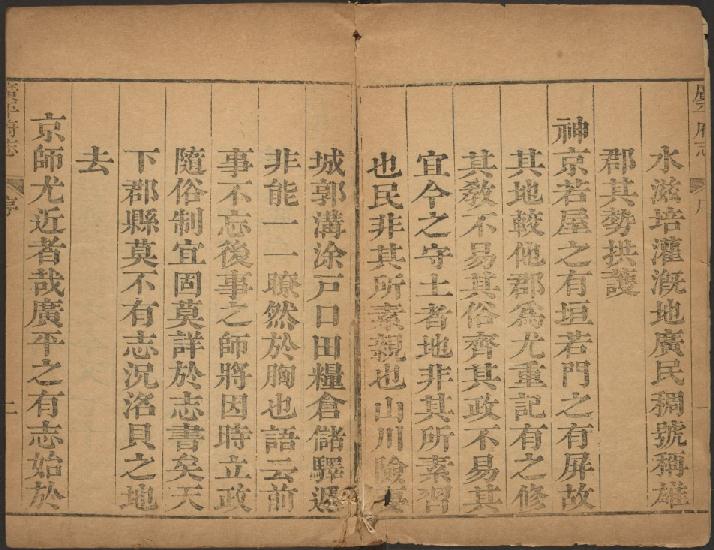 水滋培灌漑地廣民稠號稱雄
郡其勢拱護
神京若屋之有垣若門之有屏故
其地較他郡為尤重記有之修
其教不易其俗齊其政不易其
宜今之守土者地非其所素習
也民非其所素親也山川險要
城郭溝涂戸口田糧倉儲驛遞
非能一一瞭然於胸也語云前
事不忘後事之師將因時立政
隨俗制宜固莫詳於志書矣天
下郡縣莫不有志况洺貝之地
去
京師尤近者哉廣平之有志始於
廣平府志
序